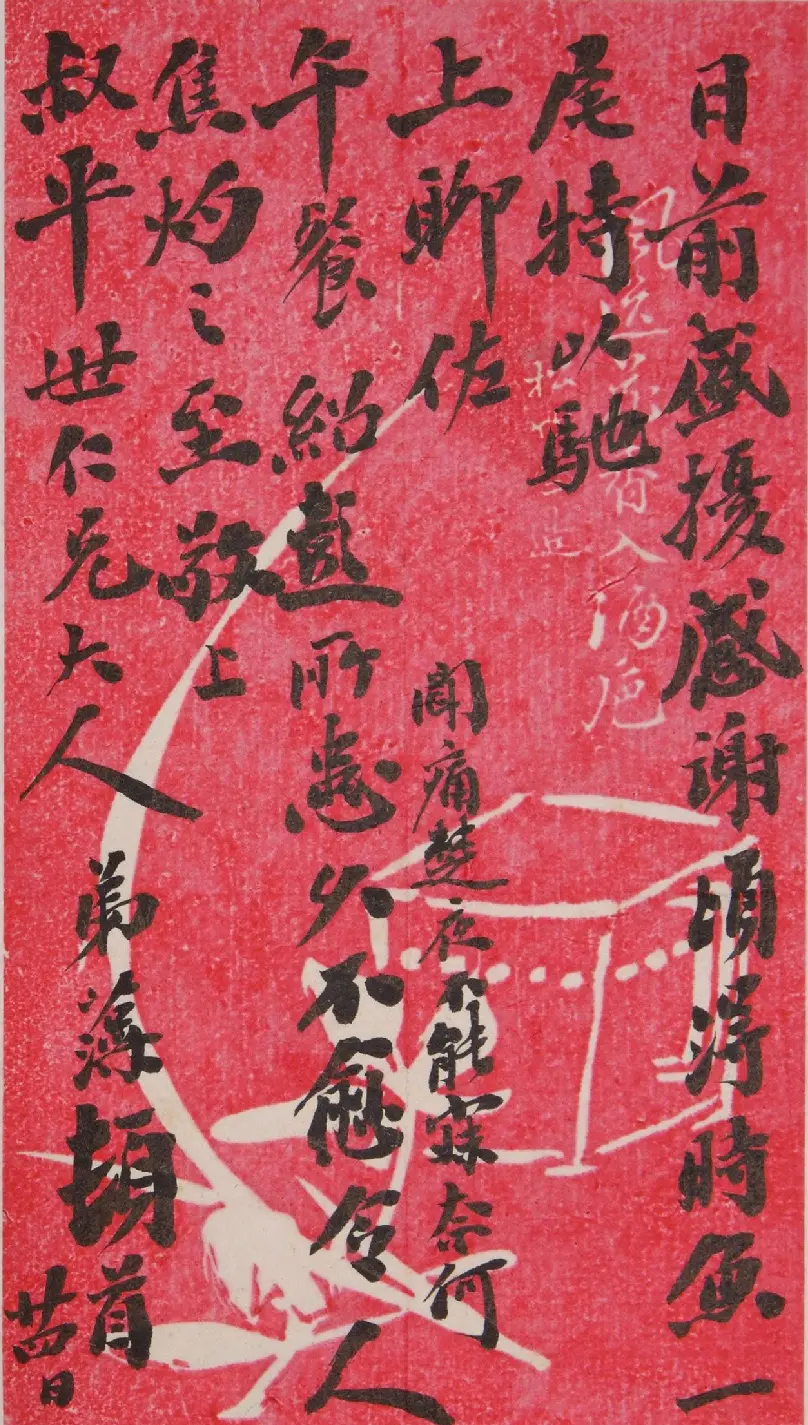 日前盛擾感謝頃得時魚一
尾特以馳
上聊佐
午餐 紹彝所患久不愈令人
聞痛楚夜不能寐奈何
焦灼之至敬上
叔平世仁兄大人
弟藻頓首
廿四日
風送 香入酒卮